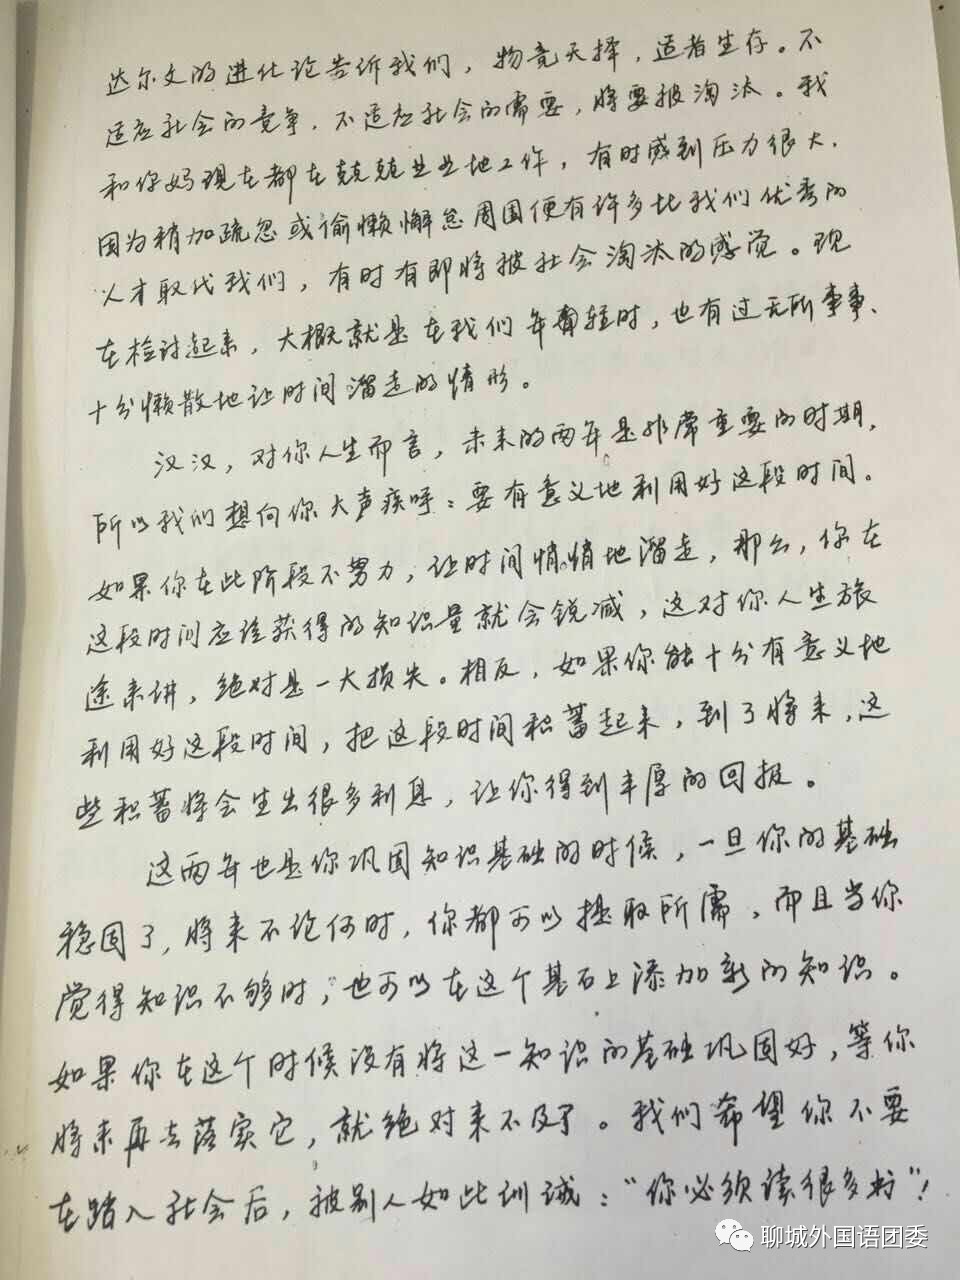 达尔文的进化论告诉我们，物竞天择，适者生存。不
适应社会的竞争，不适应社会的需要，将要被淘汰。我
和你妈现在都在兢兢业业地工作，有时感到压力很大，
因为稍加疏忽或偷懒懈怠周围便有许多比我们优秀的
人才取代我们，有时有即将被社会淘汰的感觉。现
在检讨起来，大概就是在我们年青轻时，也有过无所事事、
十分懒散地让时间溜走的情形。
汉汉，对你人生而言，未来的两年是非常重要的时期，
所以我们想向你大声疾呼：要有意义地利用好这段时间。
如果你在此阶段不努力，让时间悄悄地溜走，那么，你在
这段时间应该获得的知识量就会锐减，这对你人生旅
途来讲，绝对是一大损失。相反，如果你能十分有意义地
利用好这段时间，把这段时间积蓄起来，到了将来，这
些积蓄将会生出很多利息，让你得到丰厚的回报。
这两年也是你巩固知识基础的时候，一旦你的基础
稳固了，将来不论何时，你都可以提取所需，而且当你
觉得知识不够时，也可以在这个基石上添加新的知识。
如果你在这个时候没有将这一知识的基础巩固好，等你
将来再去落实它，就绝对来不及了。我们希望你不要
在踏入社会后，被别人如此训诫：“你必须读很多书”！
聊城外国语团委